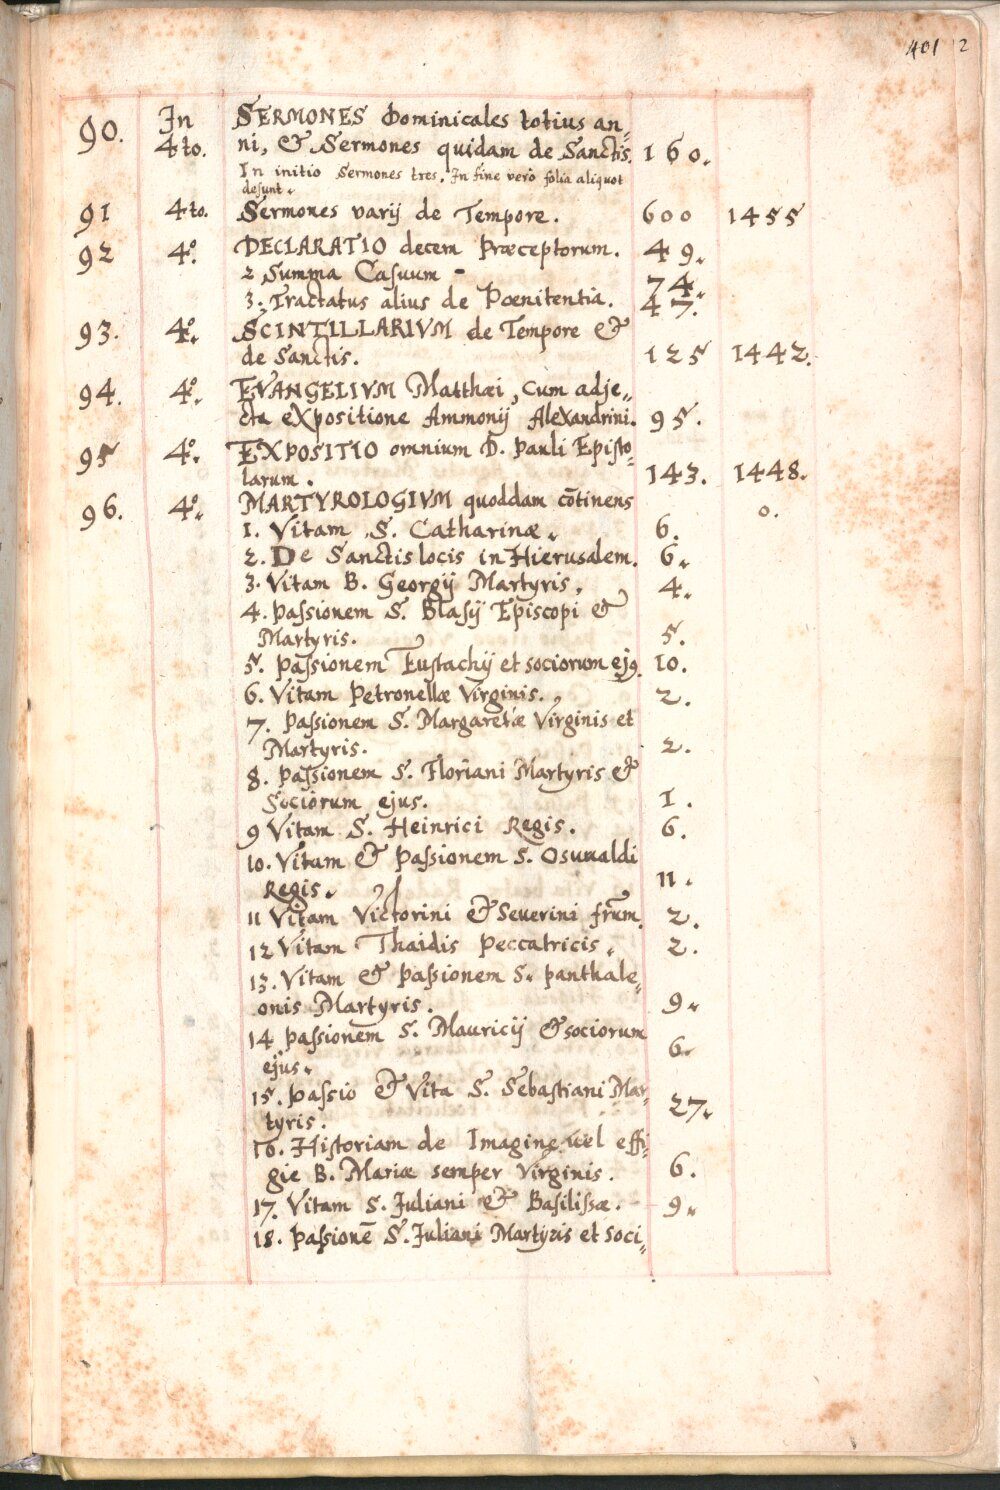 401 | 2
90. In SERMONES Dominicales totius an„
4to. ni, & Sermones quidam de Sanctis. 160.
In initio Sermones tres. In fine verò folia aliquot
desunt.
91 4to. Sermones varij de Tempore. 600 1455
92 4º. DECLARATIO decem Præceptorum. 49.
2 Summa Casuum - 74.
3. Tractatus alius de Pœnitentia. 47.
93. 4º. SCINTILLARIVM de Tempore &
de Sanctis. 125 1442.
94. 4º. EVANGELIVM Matthæi, cum adje„
cta expositione Ammonij Alexandrini. 95.
95 4º. EXPOSITIO omnium D. Pauli Episto„
larum. 143. 1448.
96. 4º. MARTYROLOGIVM quoddam cōtinens 0.
1. Vitam S. Catharinæ. 6.
2. De Sanctis locis in Hierusalem. 6.
3. Vitam B. Georgij Martyris. 4.
4. Passionem S. Blasij Episcopi &
Martyris. 5.
5. Passionem Eustachij et sociorum ej9. 10.
6. Vitam Petronellæ Virginis. 2.
7. Passionem S. Margaretæ Virginis et
Martyris. 2.
8. Passionem S. Floriani Martyris &
Sociorum ejus. 1.
9 Vitam S. Heinrici Regis. 6.
10. Vitam & Passionem S. Osuualdi
Regis. 11.
11 Vitam Victorini & Seuerini frūm. 2.
12 Vitam Thaidis Peccatricis. 2.
13. Vitam & Passionem S. Panthale„
onis Martyris. 9.
14. Passionem S. Mauricij & sociorum
ejus. 6.
15. Passio & Vita S. Sebastiani Mar„
tyris. 27.
16. Historiam de Imagine uel effi„
gie B. Mariæ semper Virginis. 6.
17. Vitam S. Juliani & Basilissæ. 9.
18. Passionē S. Juliani Martyris et soci„